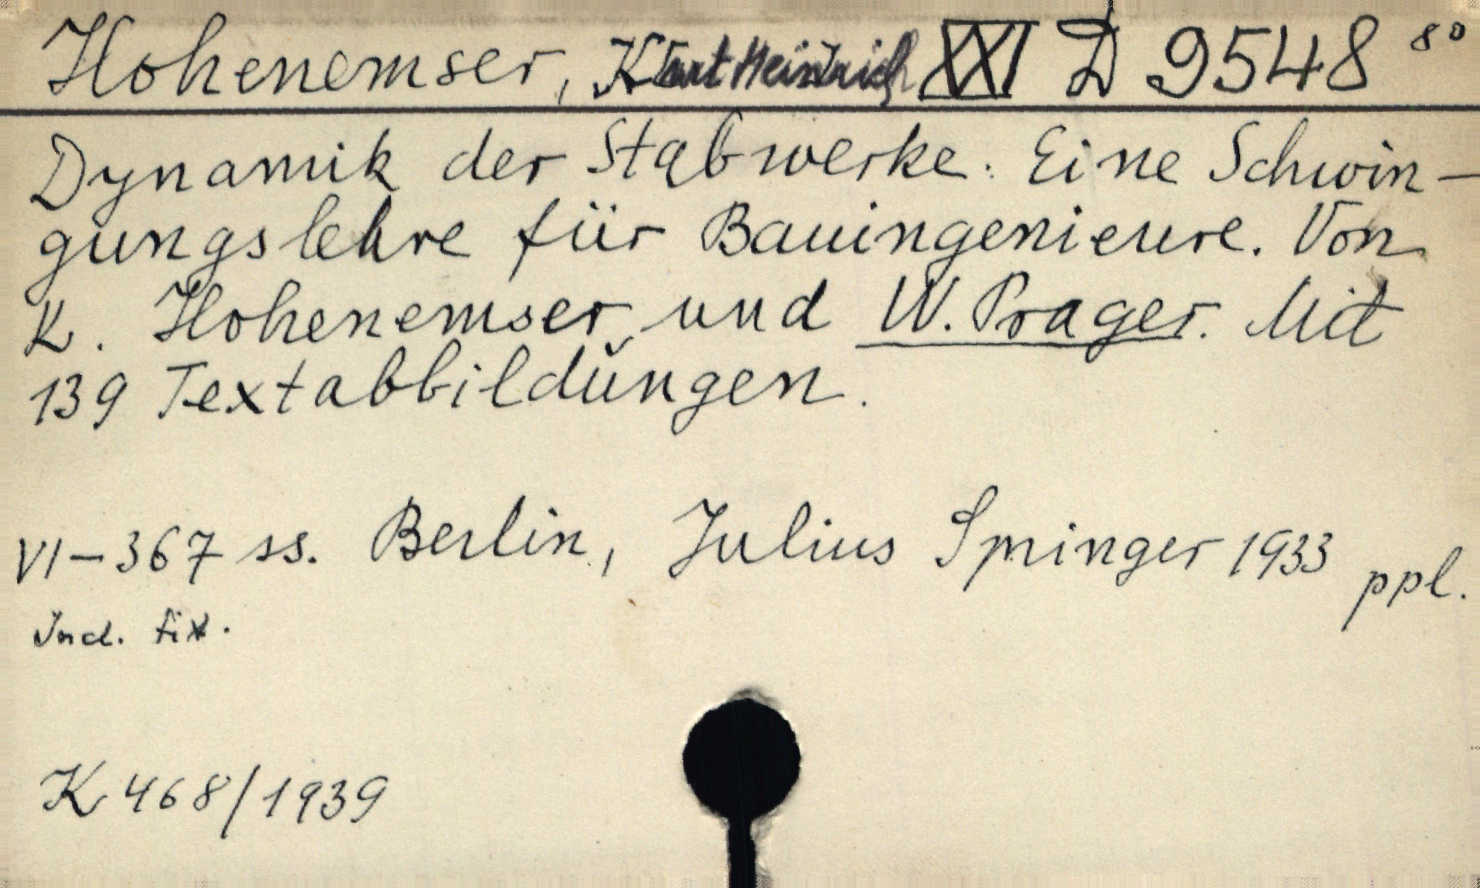 Hohenemser, Kurt Heinrich XXI D 9548 8°
Dynamik der Stabwerke. Eine Schwin-
gungslehre für Bauingenieure. Von
K. Hohenemser und W. Prager. Mit
139 Textabbildŭngen.
VI-367 ss. Berlin, Julius Springer 1933 ppl.
Ind. tix.
K 468/1939